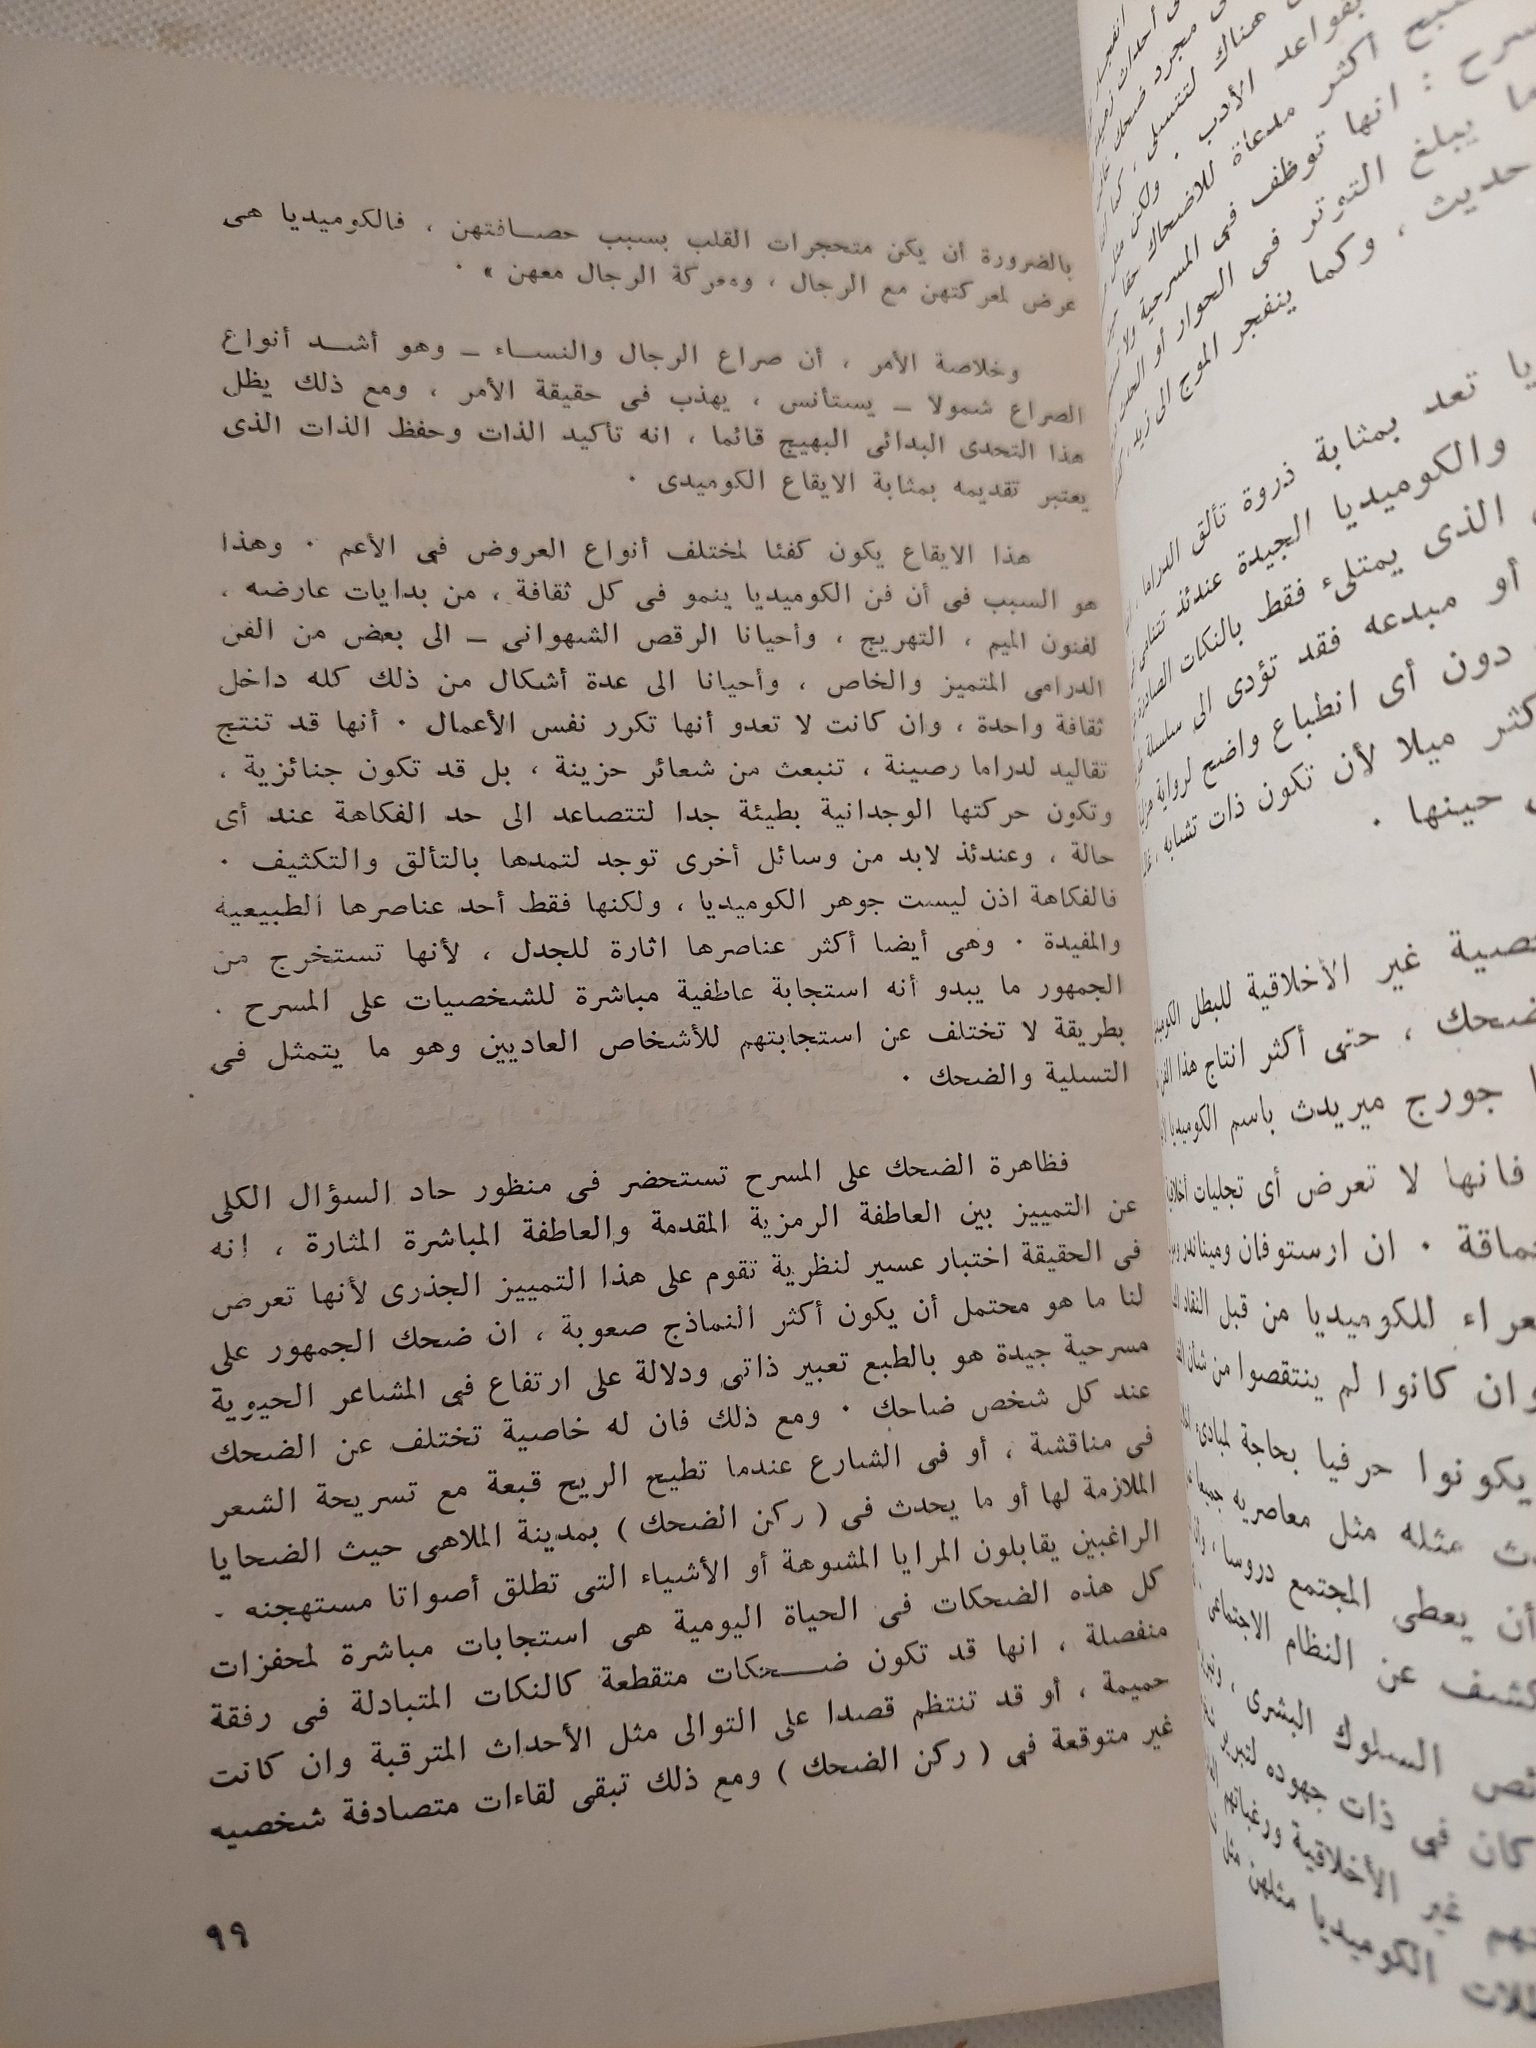 بالضرورة ان يكن متحجرات القلب بسبب حصافتهن ، فالكوميديا هى
عرض لمعركتهن مع الرجال ، ومعركة الرجال معهن » ٠
وخلاصة الأمر ، أن صراع الرجال والنساء ــ وهو أشد أنواع
الصراع شمولا ــ يستأنس ، يهذب فى حقيقة الأمر ، ومع ذلك يظل
هذا التحدى البدائى البهيج قائما ، انه تأكيد الذات وحفظ الذات الذى
يعتبر تقديمه بمثابة الايقاع الكوميدى ٠
هذا الايقاع يكون كفئا لمختلف أنواع العروض فى الأعم ٠ وهذا
هو السبب فى أن فن الكوميديا ينمو فى كل ثقافة ، من بدايات عارضه ،
لفنون الميم ، التهريج ، وأحيانا الرقص الشهوانى ــ الى بعض من الفن
الدرامى المتميز والخاص ، وأحيانا الى عدة أشكال من ذلك كله داخل
ثقافة واحدة ، وان كانت لا تعدو أنها تكرر نفس الأعمال ٠ أنها قد تنتج
تقاليد لدراما رصينة ، تنبعث من شعائر حزينة ، بل قد تكون جنائزية ،
وتكون حركتها الوجدانية بطيئة جدا لتتصاعد الى حد الفكاهة عند أى
حالة ، وعندئذ لابد من وسائل أخرى توجد لتمدها بالتألق والتكثيف ٠
فالفكاهة اذن ليست جوهر الكوميديا ، ولكنها فقط أحد عناصرها الطبيعية
والمفيدة ٠ وهى أيضا أكثر عناصرها اثارة للجدل ، لأنها تستخرج من
الجمهور ما يبدو أنه استجابة عاطفية مباشرة للشخصيات على المسرح ٠
بطريقة لا تختلف عن استجابتهم للأشخاص العاديين وهو ما يتمثل فى
التسلية والضحك ٠
فظاهرة الضحك على المسرح تستحضر فى منظور حاد السؤال الكلى
عن التمييز بين العاطفة الرمزية المقدمة والعاطفة المباشرة المثارة ، انه
فى الحقيقة اختبار عسير لنظرية تقوم على هذا التمييز الجذرى لأنها تعرض
لنا ما هو محتمل أن يكون أكثر النماذج صعوبة ، ان ضحك الجمهور على
مسرحية جيدة هو بالطبع تعبير ذاتى ودلالة على ارتفاع فى المشاعر الحيوية
عند كل شخص ضاحك ٠ ومع ذلك فان له خاصية تختلف عن الضحك
فى مناقشة ، أو فى الشارع عندما تطيح الريح قبعة مع تسريحة الشعر
الملازمة لها أو ما يحدث فى ( ركن الضحك ) بمدينة الملاهى حيث الضحايا
الراغبين يقابلون المرايا المشوهة أو الأشياء التى تطلق أصواتا مستهجنه ٠
كل هذه الضحكات فى الحياة اليومية هى استجابات مباشرة لمحفزات
منفصلة ، انها قد تكون ضحكات متقطعة كالنكات المتبادلة فى رفقة
حميمة ، أو قد تنتظم قصدا على التوالى مثل الأحداث المترقبة وان كانت
غير متوقعة فى ( ركن الضحك ) ومع ذلك تبقى لقاءات متصادفة شخصيه
٩٩
هناك لتتسلى
بقواعد الأدب ٠ ولكن
أكثر مدعاة للاضحاك
انها توظف فى المسرحية
يبلغ التوتر فى الحوار أو
حديث ، وكما ينفجر الموج الى
تعد بمثابة ذروة تألق الدراما
والكوميديا الجيدة عندئذ
الذى يمتلىء فقط بالنكات
أو مبدعه فقد تؤدى الى سلسلة
دون أى انطباع واضح لرواية
ميلا لأن تكون ذات تشابه
حينها ٠
غير الأخلاقية للبطل
، حتى أكثر انتاج هذا الفن
جورج ميريدث باسم الكوميديا
فانها لا تعرض أى تجليات
٠ ان ارستوفان وميناندر
للكوميديا من قبل النقاد
وان كانوا لم ينتقصوا من شأن
يكونوا حرفيا بحاجة لمبادىء
مثله مثل معاصريه
أن يعطى المجتمع دروسا
عن النظام الاجتماعى
السلوك البشرى
كان فى ذات جهوده
غير الأخلاقية
الكوميديا